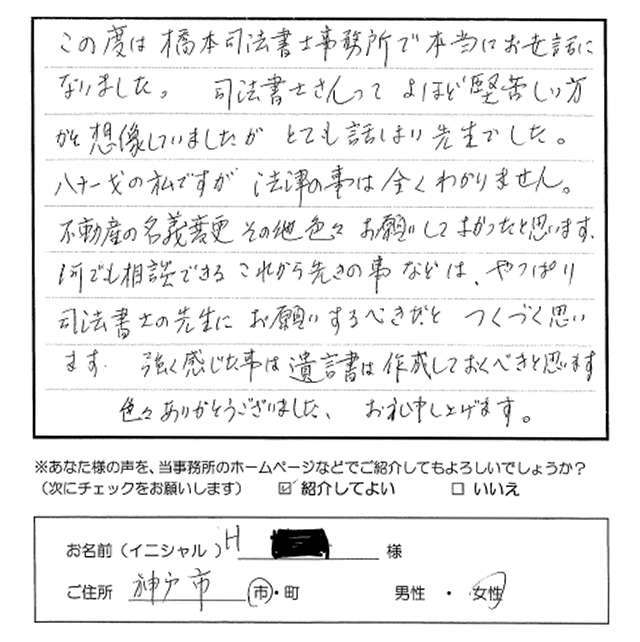 この度は橋本司法書士事務所で本当にお世話に
なりました。 司法書士さんって よほど堅苦しい方
かと想像していましたが とても話しよい先生でした。
八十一才の私ですが 法津の事は全くわかりません。
不動産の名義変更 その他色々 お願いしてよかったと思います。
何でも相談できる これから先きの事などは、やっぱり
司法書士の先生に お願いするべきだと つくづく思い
ます. 強く感じた事は遺言書は作成しておくべきと思います
色々ありがとうございました、 お礼申し上げます。
※あなた様の声を、当事務所のホームページなどでご紹介してもよろしいでしょうか?
(次にチェックをお願いします) ☑ 紹介してよい □ いいえ
お名前(イニシャル) H 様
ご住所 神戸市 市・町 男性 ・ 女性